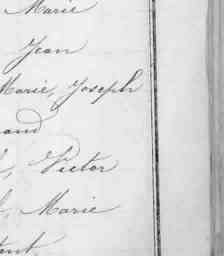 Marie
Jean
Marie, Joseph
and
, Victor
, Marie
tent